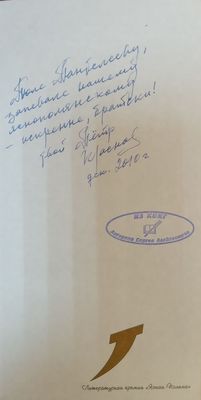 Толе Пантелееву,
запевале нашему
яснополянскому
- искренне, братски!
твой Пётр
Краснов
дек. 2010 г.
ИЗ КНИГ
Сергея
«Литературная премия «Ясная Поляна»